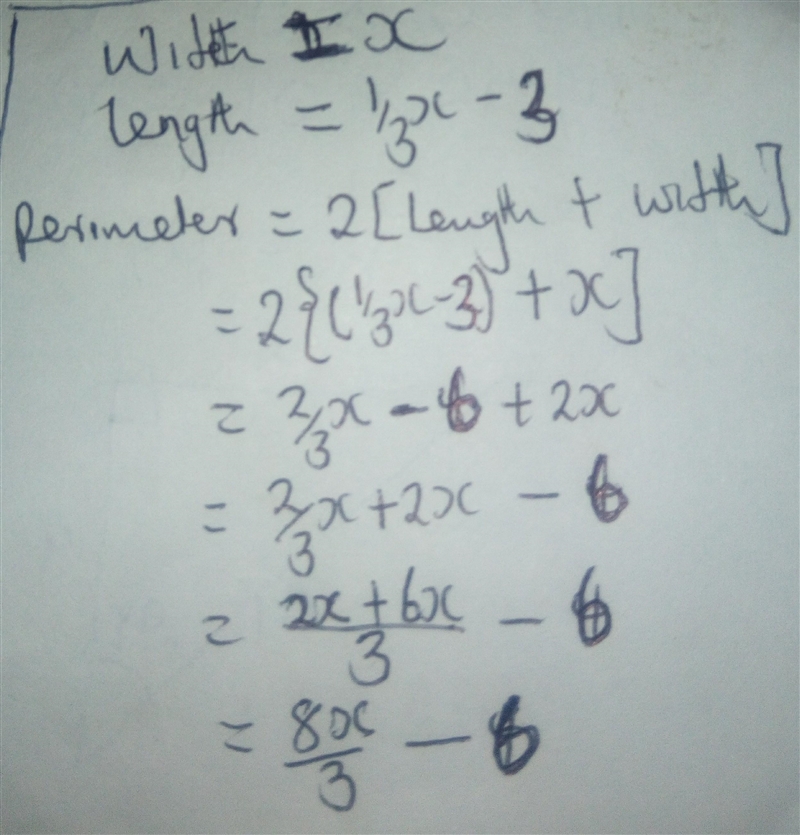 Width = x
length = 1/3x - 3
Perimeter = 2[length + width]
= 2{(1/3x-3) + x]
= 2/3x - 6 + 2x
= 2/3x + 2x - 6
= 2x + 6x / 3 - 6
= 8x / 3 - 6